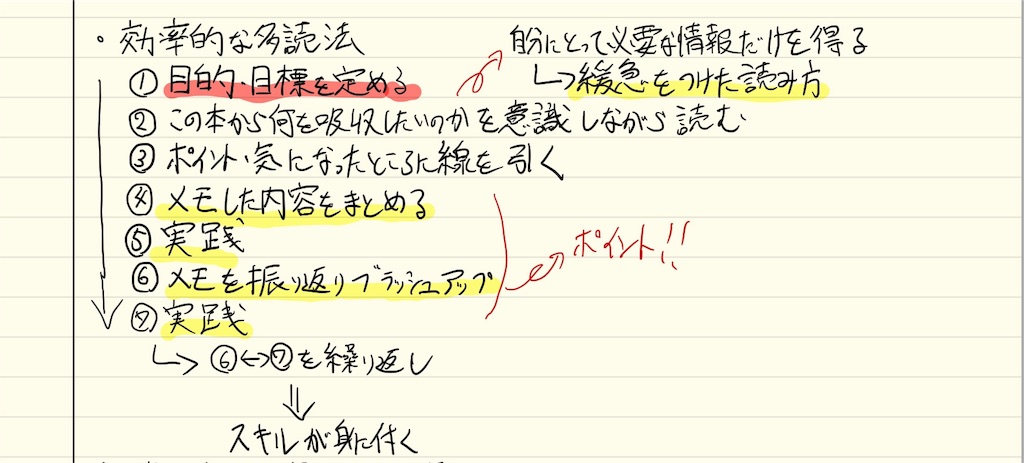 ・効率的な多読法
① 目的・目標を定める
自分にとって必要な情報だけを得る
↳緩急をつけた読み方
② この本から何を吸収したいのかを意識しながら読む
③ ポイント・気になったところに線を引く
④ メモした内容をまとめる
⑤ 実践
ポイント!!
⑥ メモを振り返りブラッシュアップ
⑦ 実践
↳ ⑥↔⑦を繰り返し
⇓
スキルが身に付く